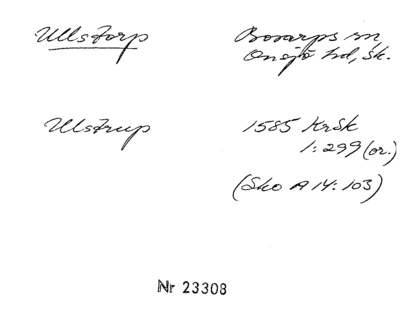 Ullstorp
Bosarps sn
Onsjö hd, Sk.
Ulstrup
1585 KrSk
1:299 (or.)
(Sko A 14:103)
Nr 23308